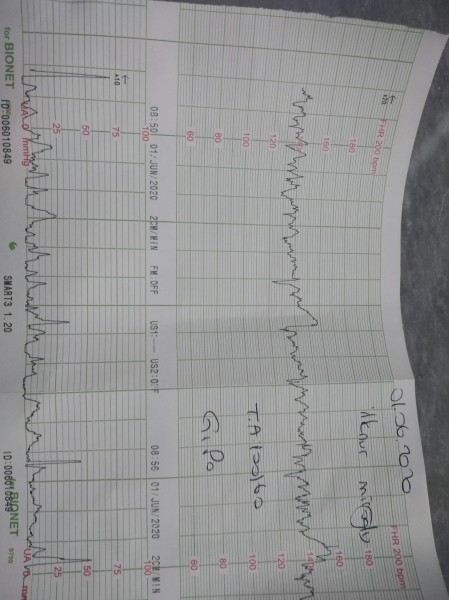 01.06.2020
FHR 200 bpm
FHR 200 bpm
+20
180
180
160
160
140
120
120
100
100
80
80
60
60
08:50 01/JUN/2020 2CM/MIN FM:OFF US1:--- US2:OFF
08:56 01/JUN/2020 2CM/MIN
100
100
+10
75
75
50
50
25
25
UA 0 mmHg
UA 0 mm
for BIONET ID:006010849 SMART3 1.20
ID:006010849
BIONET